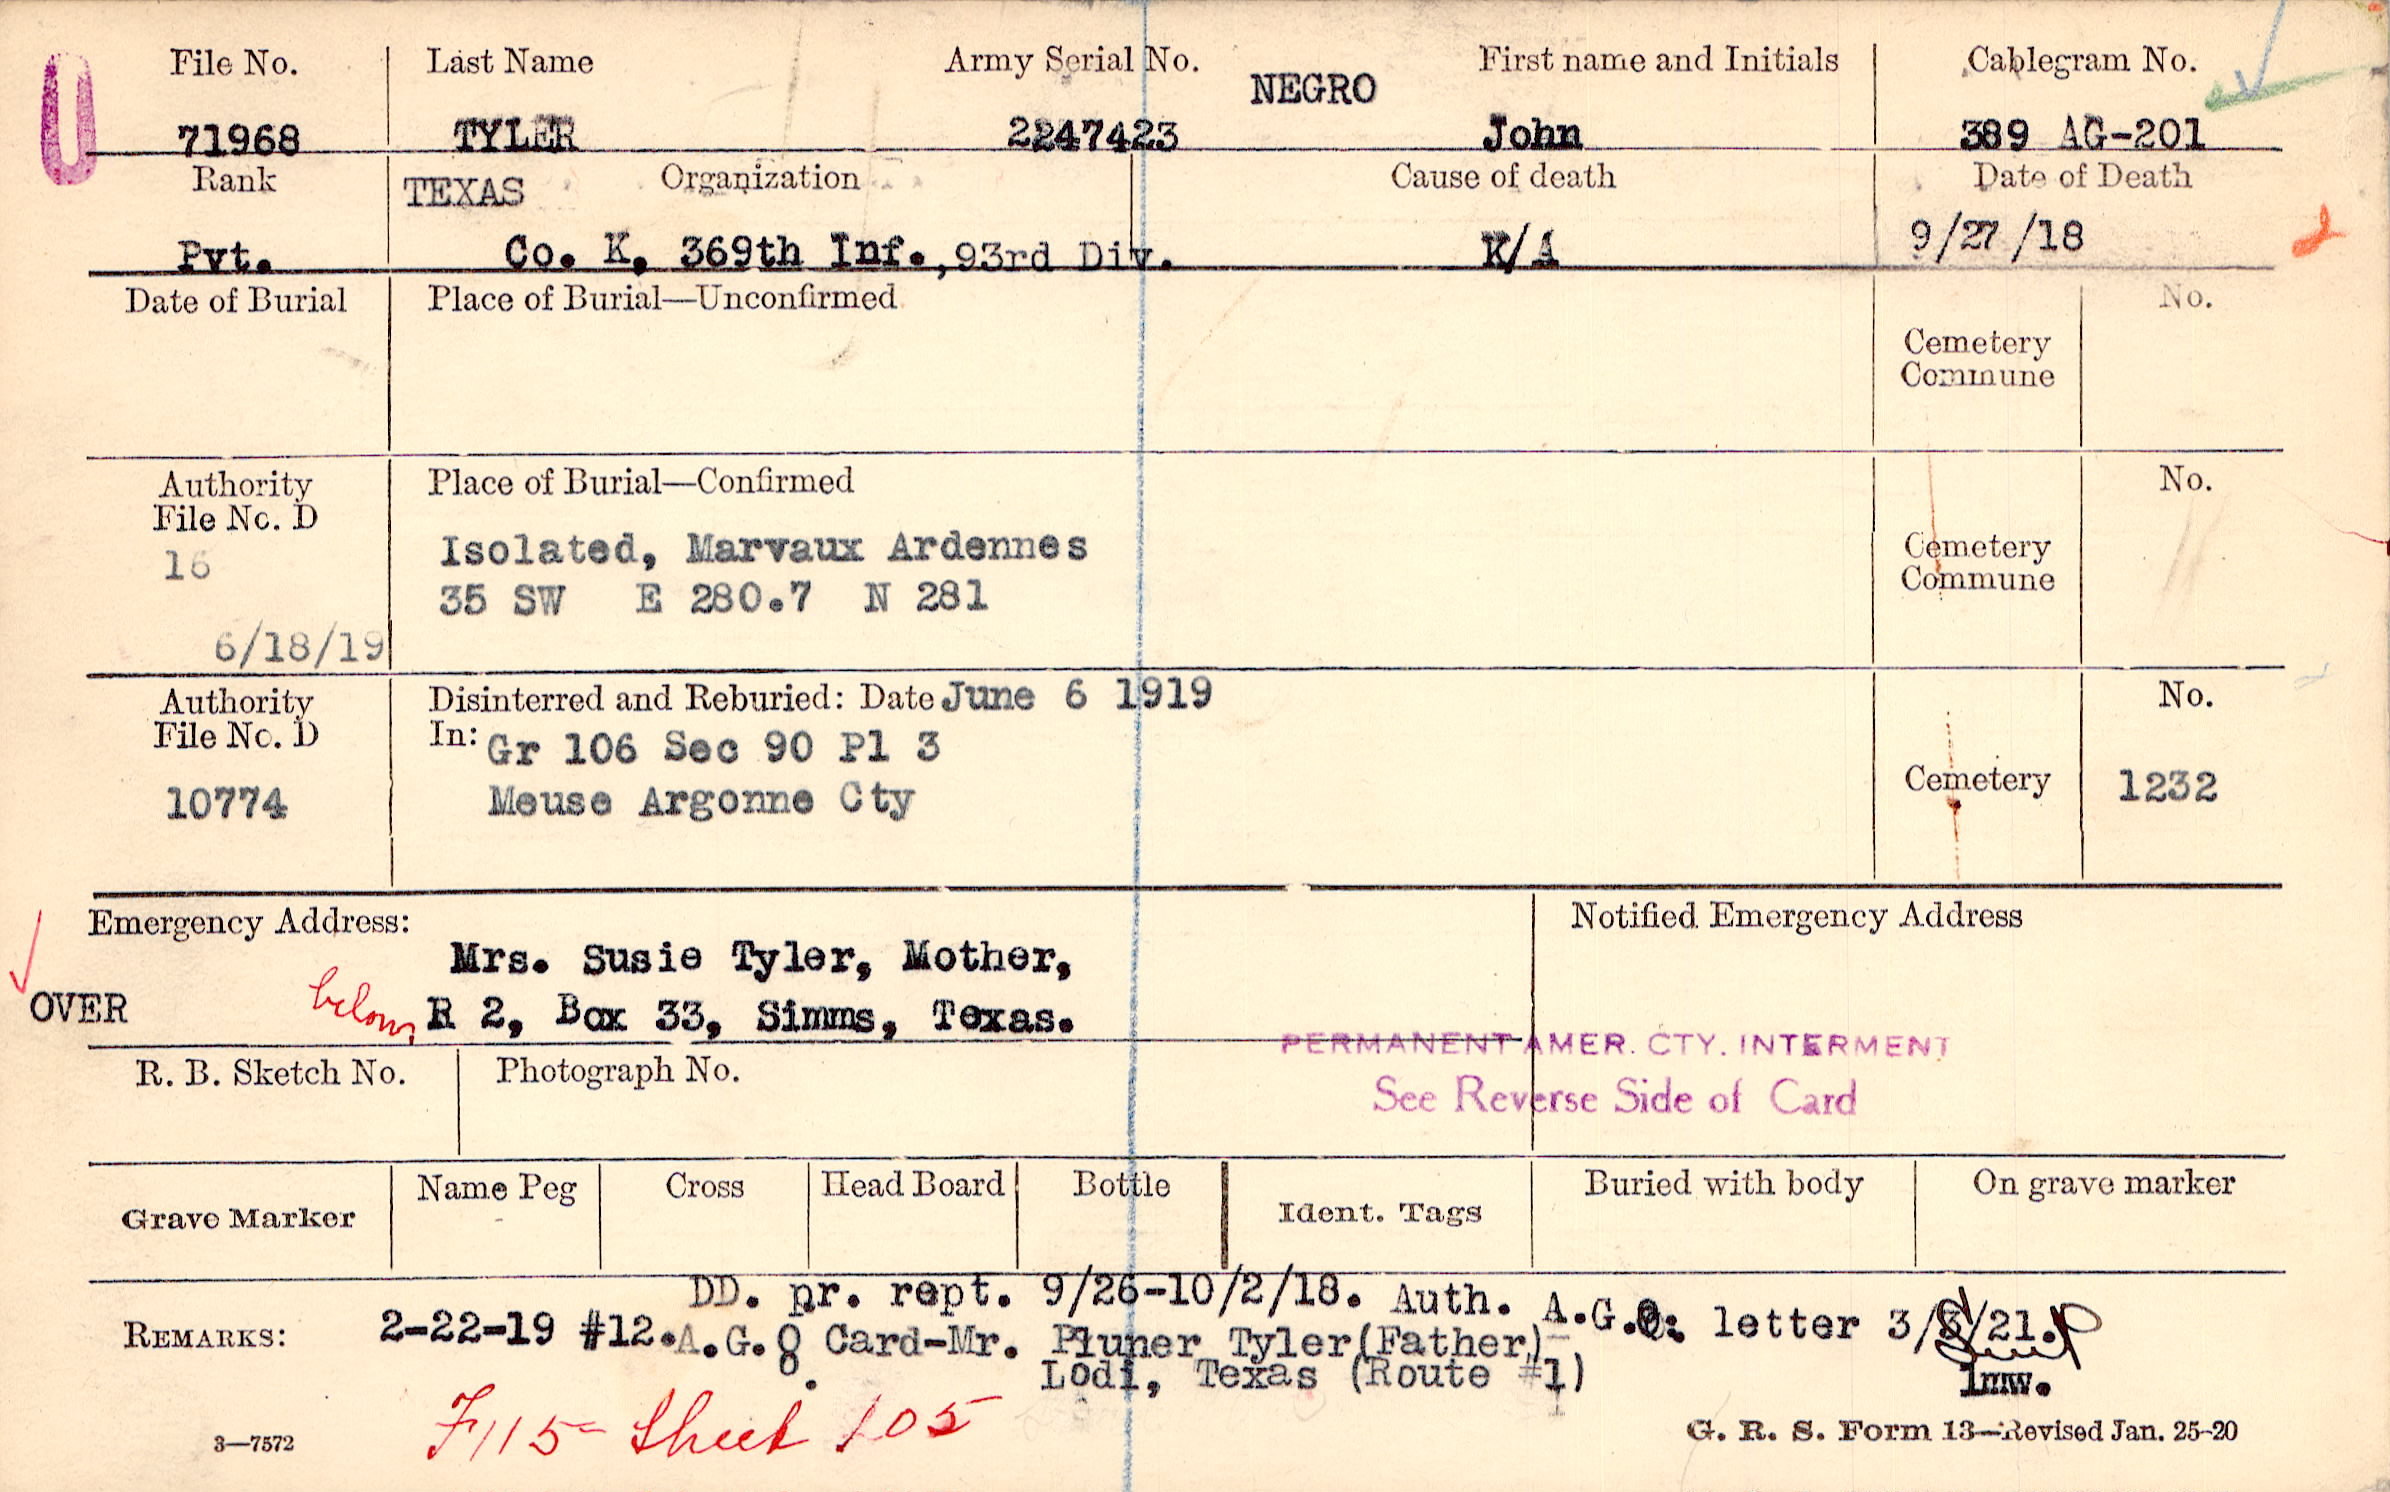 File No.
Last Name
Army Serial No.
NEGRO
First name and Initials
Cablegram No.
71968
TYLER
2247423
John
389 AG-201
Rank
TEXAS
Organization
Cause of death
Date of Death
Pvt.
Co. K, 369th Inf., 93rd Div.
K/A
9/27/18
Date of Burial
Place of Burial—Unconfirmed
No.
Cemetery
Commune
Authority
File No. D
Place of Burial—Confirmed
No.
16
Isolated, Marvaux Ardennes
35 SW E 280.7 N 281
Cemetery
Commune
6/18/19
Authority
File No. D
Disinterred and Reburied: Date June 6 1919
No.
In: Gr 106 Sec 90 Pl 3
10774
Meuse Argonne Cty
Cemetery
1232
Emergency Address:
Notified Emergency Address
Mrs. Susie Tyler, Mother,
OVER
below
R 2, Box 33, Simms, Texas.
PERMANENT AMER. CTY. INTERMENT
See Reverse Side of Card
R. B. Sketch No.
Photograph No.
Grave Marker
Name Peg
Cross
Head Board
Bottle
Ident. Tags
Buried with body
On grave marker
DD. pr. rept. 9/26-10/2/18. Auth. A.G.O. letter 3/8/21.
REMARKS:
2-22-19 #12. A.G.O. Card-Mr. Pluner Tyler(Father)
Lodi, Texas (Route #1)
lmw.
F115- Sheet 105
3—7572
G. R. S. Form 13—Revised Jan. 25-20